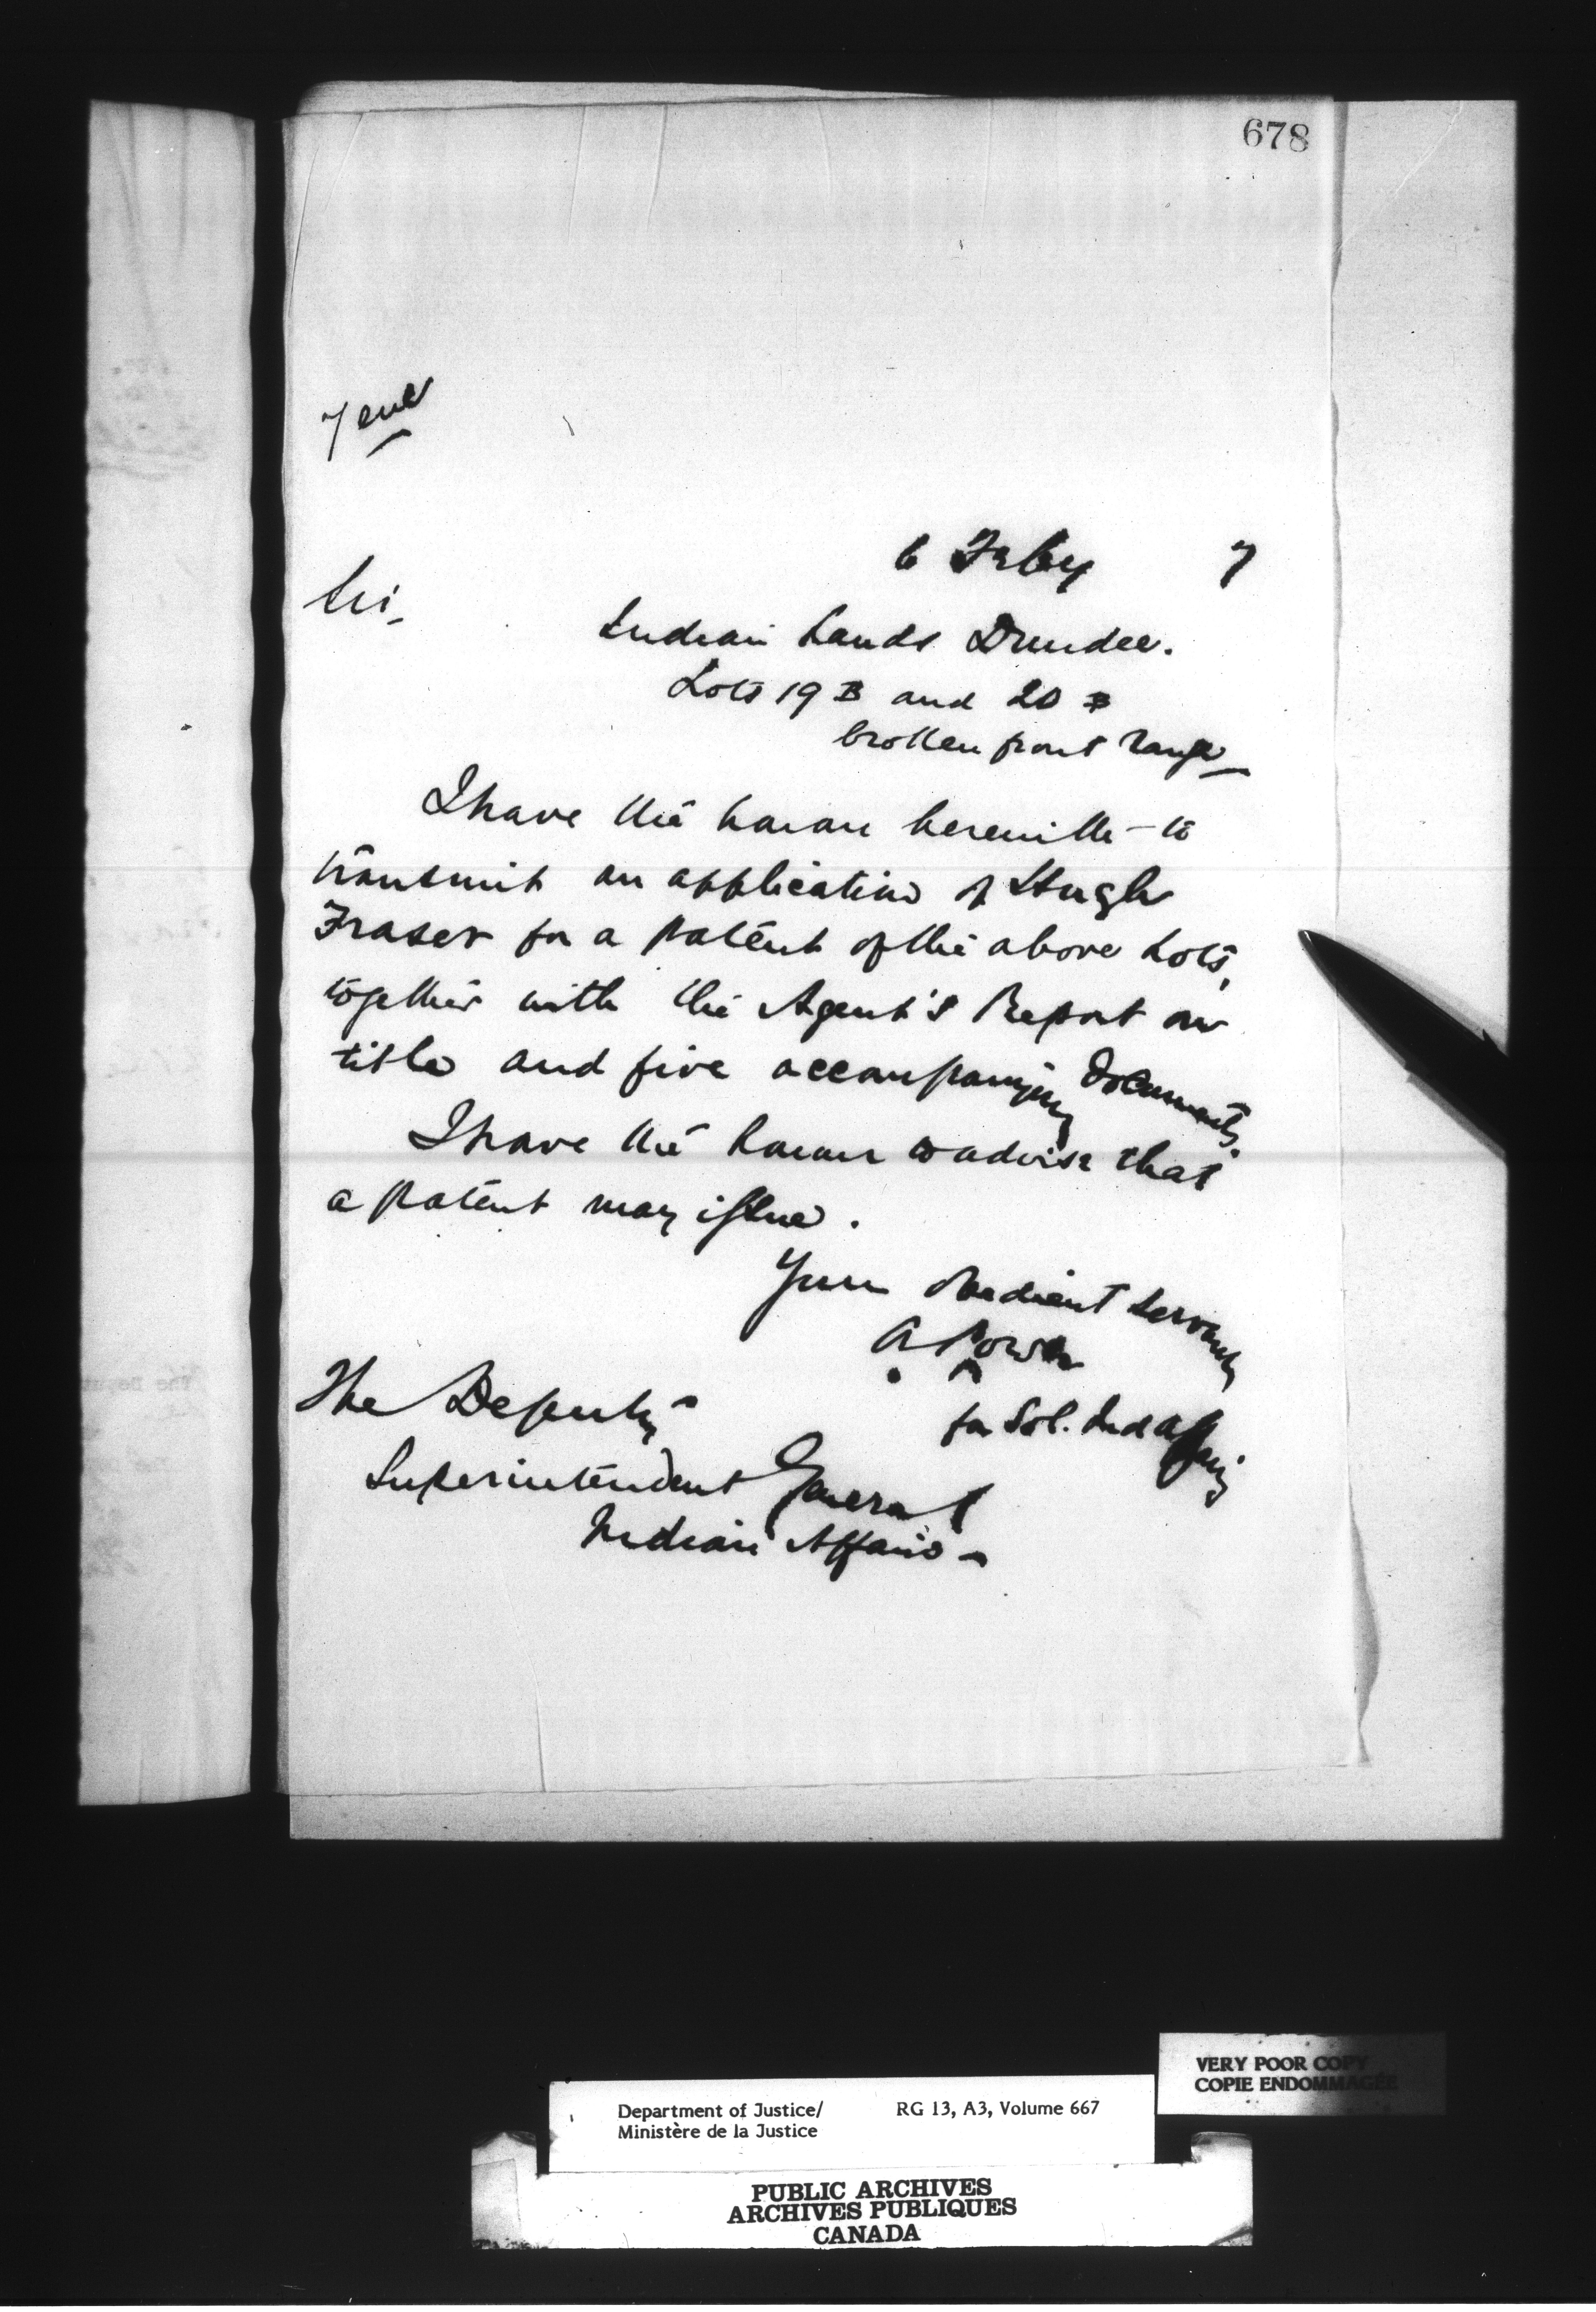 678
7 encl
6 Feby 7
Sir,
Indian Lands Dundee.
Lots 19 B and 20 B
broken front range
I have the honour herewith to
transmit an application of Hugh
Fraser for a patent of the above Lots,
together with the Agent's Report on
title and five accompanying documents.
I have the honour to advise that
a patent may issue.
Your obedient servant
A Power
for Sol. Ind Affairs
The Deputy
Superintendent General
Indian Affairs
VERY POOR COPY
COPIE ENDOMMAGÉE
Department of Justice/ RG 13, A3, Volume 667
Ministère de la Justice
PUBLIC ARCHIVES
ARCHIVES PUBLIQUES
CANADA